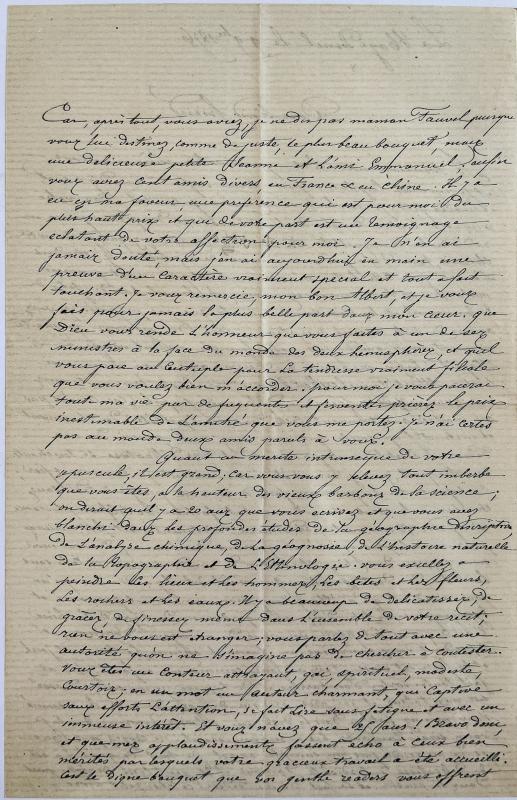 Car, après tout, vous aviez, je ne dis pas maman Fauvel puisque
vous lui destinez, comme de juste, le plus beau bouquet, mais
une délicieuse petite Jeanne et l'ami Emmanuel, enfin
vous aviez cent amis divers en France & en Chine. Il y a
eu en ma faveur une préférence qui est pour moi du
plus haut prix et qui de votre part est un témoignage
éclatant de votre affection pour moi. Je n'en ai
jamais douté mais j'en ai aujourd'hui en main une
preuve d'un caractère vraiment spécial et tout a fait
touchant. Je vous remercie, mon bon Albert, et je vous
fais pour jamais la plus belle part dans mon cœur. que
Dieu vous rende l'honneur que vous faites à un de ses
ministres à la face du monde des deux hémisphères, et qu'il
vous paie au centuple pour la tendresse vraiment filiale
que vous voulez bien m'accorder. pour moi je vous paierai
tout ma vie par de fréquentes et ferventes prières le prix
inestimable de l'amitié que vous me portez. je n'ai certes
pas au monde deux amis pareils à vous.
Quant au mérite intrinsèque de votre
opuscule, il est grand, car vous vous y élevez tout imberbe
que vous êtes, a la hauteur des vieux barbons de la science;
on dirait qu'il y a 20 ans que vous écrivez et que vous avez
blanchi dans les profondes études de la géographie descriptive,
de l'analyse chimique, de la géognosie, de l'histoire naturelle
de la topographie et de l'Ethnologie. vous excellez a
peindre les lieux et les hommes, les bêtes et les fleurs,
les rochers et les eaux. Il y a beaucoup de délicatesse, de
grâces, de finesses même dans l'ensemble de votre récit;
rien ne vous est étranger; vous parlez de tout avec une
autorité qu'on ne s'imagine pas de chercher à contester.
Vous êtes un conteur attrayant, gai, spirituel, modeste,
courtois; en un mot un auteur charmant, qui captive
sans efforts l'attention, se fait lire sans fatigue et avec un
immense intérêt. Et vous n'avez que 25 ans! Bravo donc,
et que mes applaudissements fassent écho à ceux bien
mérités par lesquels votre gracieux travail a été accueilli.
C'est le digne bouquet que vos gentle readers vous offrent